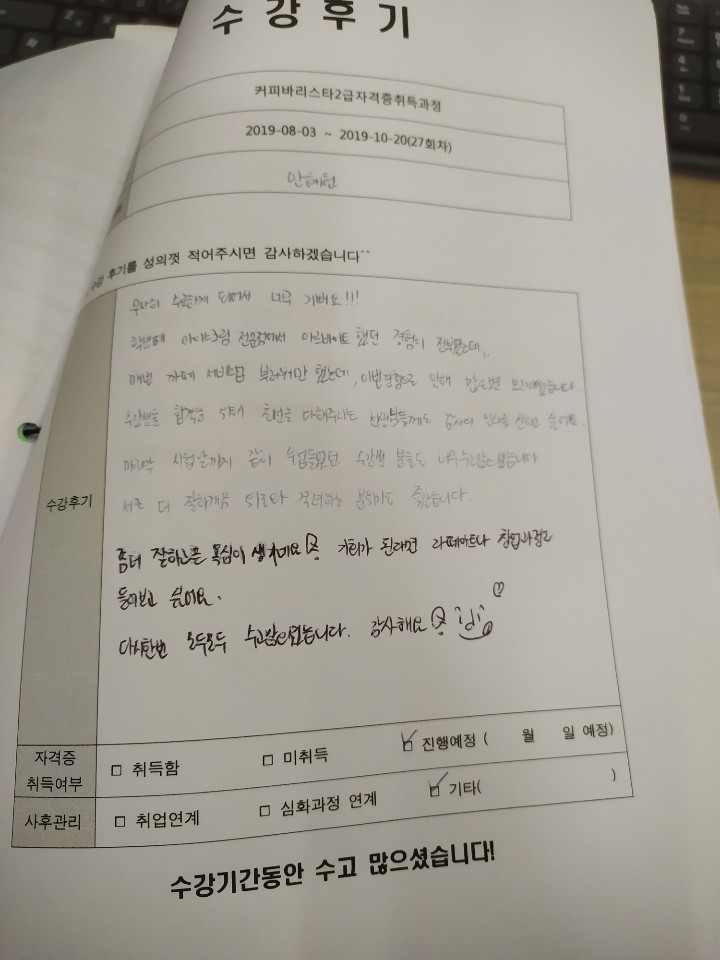 수강후기
커피바리스타2급자격증취득과정
2019-08-03 ~ 2019-10-20(27회차)
안혜원
수강 후기를 성의껏 적어주시면 감사하겠습니다^^
무사히 수료하게 되어서 너무 기뻐요!!!
학생때 아이스크림 전문점에서 아르바이트 했던 경험이 전부였는데,
매번 카페 서비스를 부러워만 했는데, 이번경험으로 인해
수강생들 합격을 위해 최선을 다해주시는 선생님들께도 감사의 인사를 전하고 싶어요.
마지막 시험날까지 같이 수업들었던 수강생 분들도 너무 수고많으셨습니다
서로 더 잘하게끔 위로와 격려하는 분위기도 좋았습니다.
수강후기
좀더 잘하고픈 욕심이 생기네요 기회가 된다면 라떼아트나 창업과정도
들어보고 싶어요.
다시한번 모두모두 수고많으셨습니다. 감사해요
자격증
취득여부
□ 취득함 □ 미취득 ☑ 진행예정 ( 월 일 예정)
사후관리 □ 취업연계 □ 심화과정 연계 ☑ 기타( )
수강기간동안 수고 많으셨습니다!